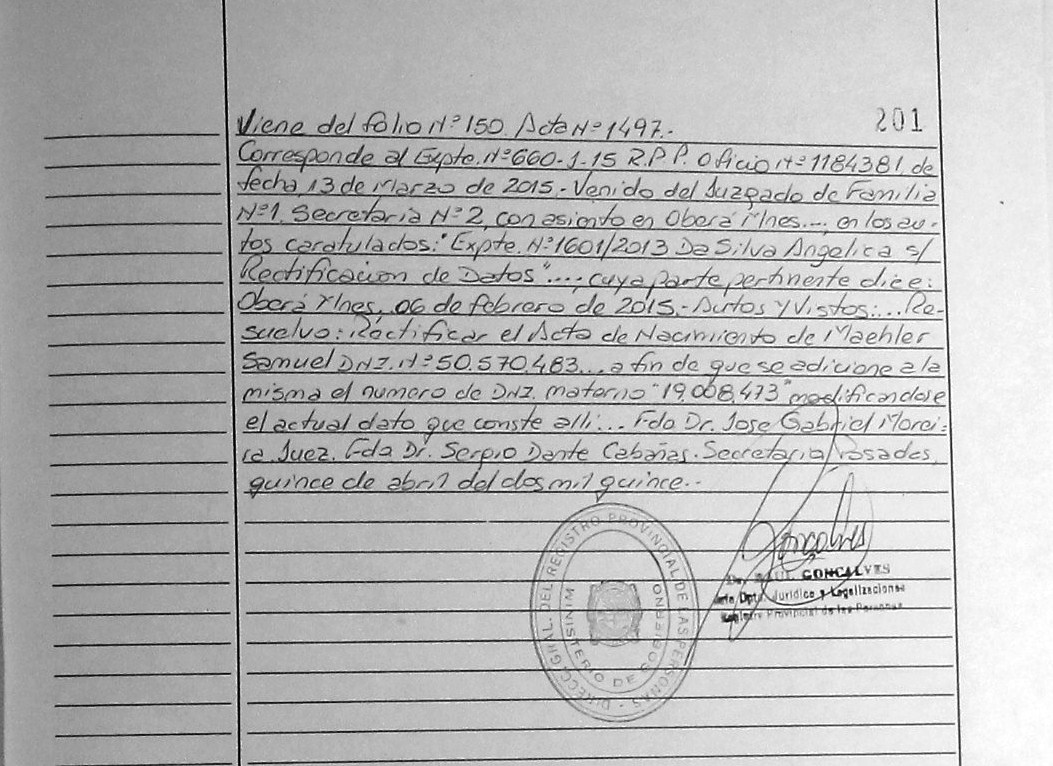 201
Viene del folio Nº 150. Acta Nº 1497.-
Corresponde al Expte. Nº 660-J-15 R.P.P. Oficio Nº 1184381, de
fecha 13 de Marzo de 2015.- Venido del Juzgado de Familia
Nº1. Secretaria Nº 2, con asiento en Oberá Mnes..., en los au-
tos caratulados: "Expte. Nº 1601/2013 Da Silva Angelica s/
Rectificacion de Datos"..., cuya parte pertinente dice:
Oberá Mnes, 06 de febrero de 2015.- Autos y Vistos:... Re-
suelvo: Rectificar el Acta de Nacimiento de Maehler
Samuel DNI. Nº 50.570.483... a fin de que se adicione a la
misma el numero de DNI. materno "19.008.473" modificandose
el actual dato que conste alli... Fdo Dr. Jose Gabriel Morei=
ra. Juez. Fda Dr. Sergio Dante Cabañas. Secretaria Posadas,
quince de abril del dos mil quince.-
DIRECC. GRAL. DEL REGISTRO PROVINCIAL DE LAS PERSONAS
MINISTERIO DE GOBIERNO
Goncalves
Dr. RAUL GONCALVES
Jefe Dpto. Jurídico y Legalizaciones
Registro Provincial de las Personas